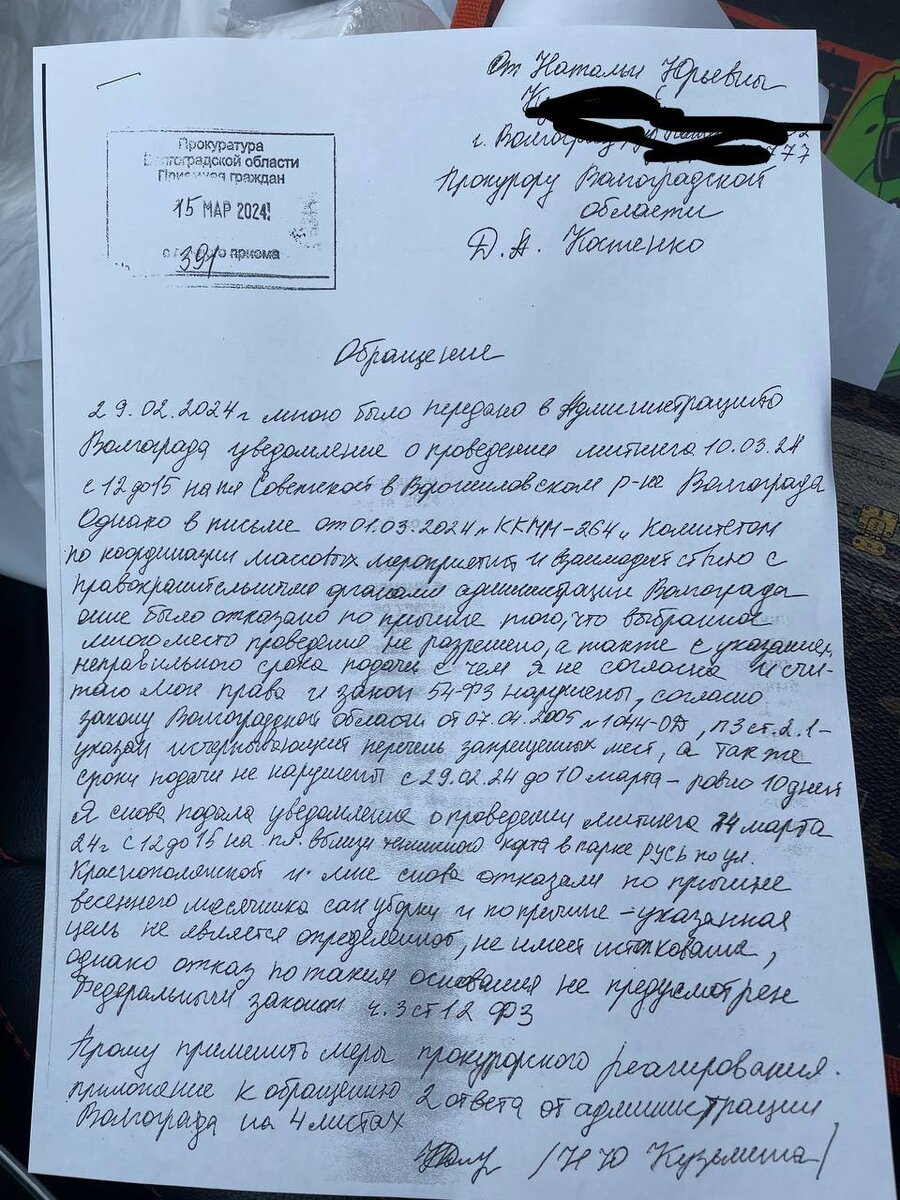 От Натальи Юрьевны
г. Волгоград
777
Прокурору Волгоградской
области
Д.А. Костенко
Прокуратура
Волгоградской области
Приемная граждан
15 МАР 2024
391
с личного приема
Обращение
29.02.2024г мною было передано в Администрацию
Волгограда уведомление о проведении митинга 10.03.24
с 12 до 15 на пл Советской в Ворошиловском р-не Волгограда
Однако в письме от 01.03.2024 "ККММ-264" Комитетом
по координации массовых мероприятий и взаимодействию с
правохранительными органами администрации Волгограда
мне было отказано по причине того, что выбранное
мною место проведение не разрешено, а также с указанием
неправильного срока подачи с чем я не согласна и счи-
таю мои права и закон 54-ФЗ нарушены, согласно
закону Волгоградской области от 07.04.2005 №1044-ОД, п3 ст.2.1-
указан исчерпывающий перечень запрещенных мест, а также
сроки подачи не нарушены с 29.02.24 до 10 марта - ровно 10 дней
Я снова подала уведомление о проведении митинга 24 марта
24г с 12 до 15 на пл. вблизи теннисного корта в парке Русь по ул.
Краснополянской и мне снова отказали по причине
весеннего месячника сан уборки и по причине - указанная
цель не является определенной, не имеет истолкования,
однако отказ по таким основания не предусмотрен
Федеральным законом ч.3 ст 12 ФЗ
Прошу применить меры прокурорского реагирования.
приложение к обращению 2 ответа от администрации
Волгограда на 4 листах
/Н Ю Куземина/